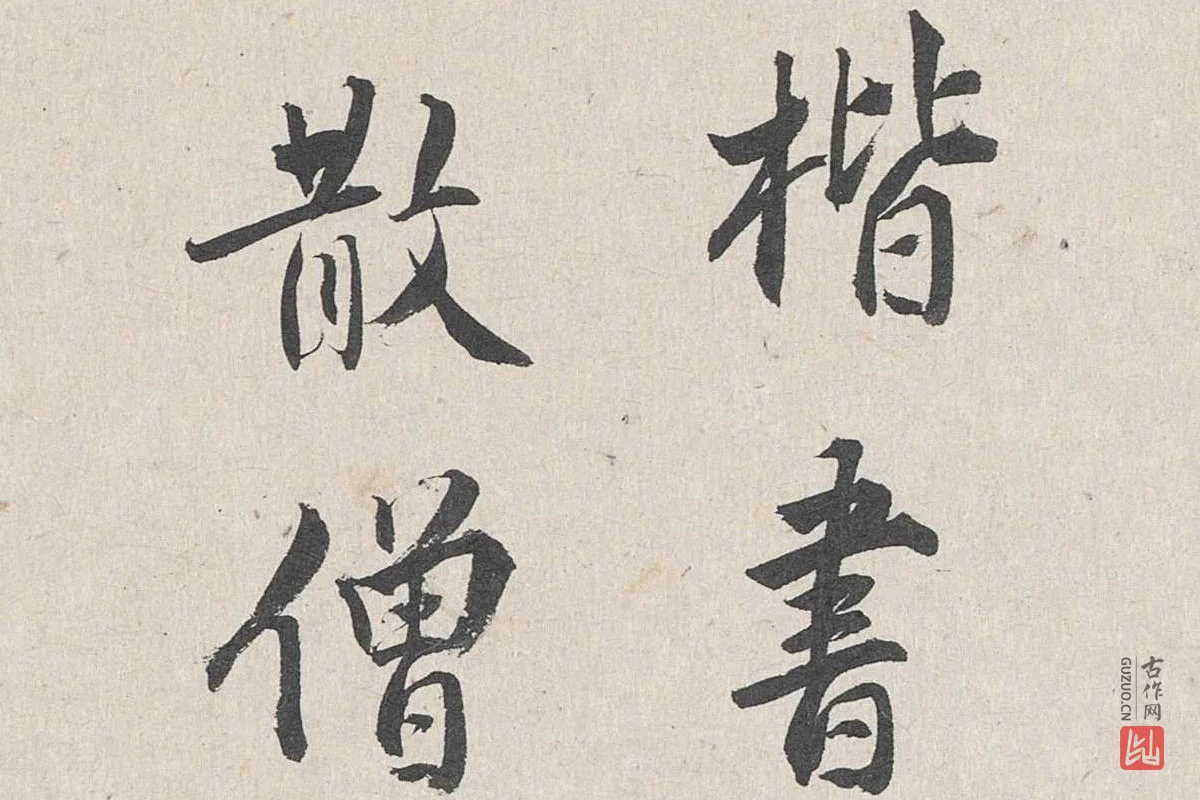 楷書
散僧
古作网
GUZUO.CN